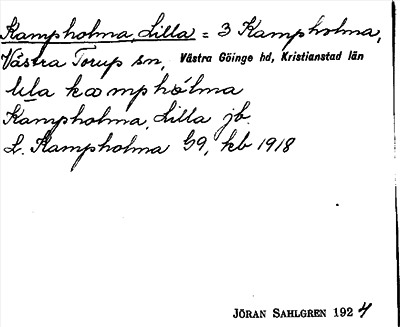 Kampholma, Lilla = 3 Kampholma,
Västra Torup sn, Västra Göinge hd, Kristianstad län
lila kæmphólma
Kampholma, Lilla jb.
L. Kampholma G9, kb 1918
JÖRAN SAHLGREN 1924